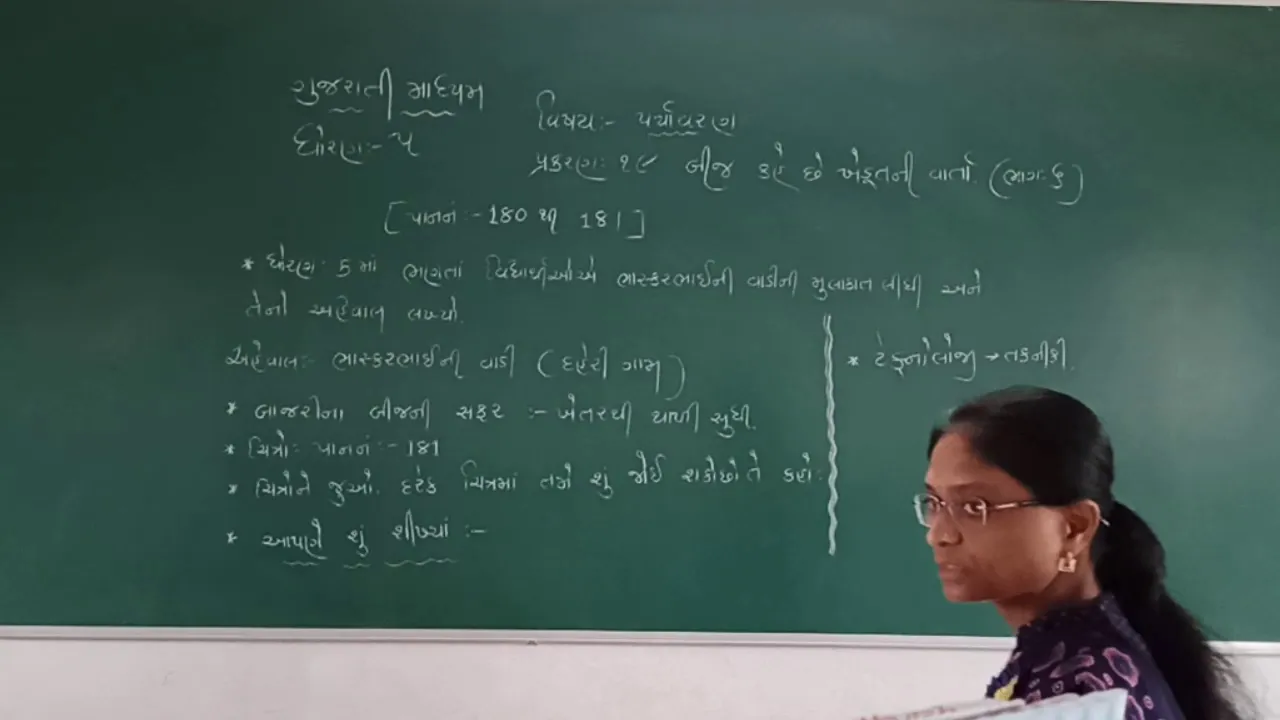 ગુજરાતી માધ્યમ
ધોરણ:- ૫
વિષય:- પર્યાવરણ
પ્રકરણ: ૧૯ બીજ કહે છે ખેડૂતની વાર્તા. (ભાગ: ૬)
[પાનનં:- 180 થી 181]
* ધોરણ: 5 માં ભણતાં વિદ્યાર્થીઓએ ભાસ્કરભાઈની વાડીની મુલાકાત લીધી અને
તેનો અહેવાલ લખ્યો.
અહેવાલ:- ભાસ્કરભાઈની વાડી (દહેરી ગામ)
* બાજરીના બીજની સફર :- ખેતરથી થાળી સુધી.
* ચિત્રો: પાનનં:- 181
* ચિત્રોને જુઓ. દરેક ચિત્રમાં તમે શું જોઈ શકોછો તે કહો:
* આપણે શું શીખ્યાં :-
* ટેક્નોલોજી → તકનીકી.